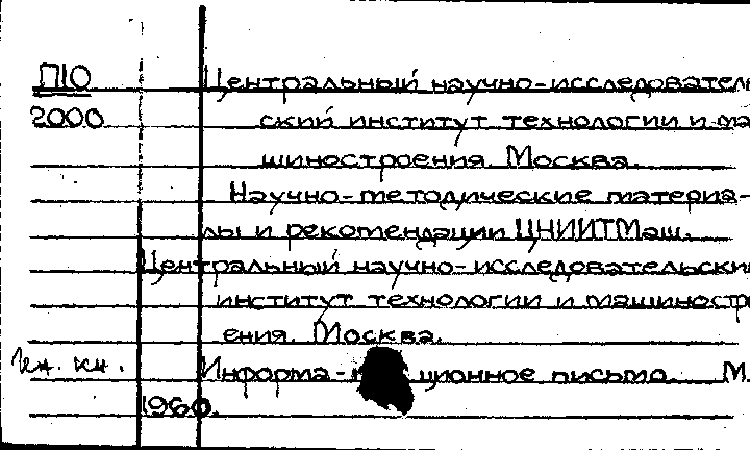 П10 Центральный научно-исследователь
2000 ский институт технологии и ма
шиностроения. Москва.
Научно-методические материа-
лы и рекомендации ЦНИИТМаш.
Центральный научно-исследовательский
институт технологии и машиностро
ения. Москва.
Информа- ционное письмо М.
1960.